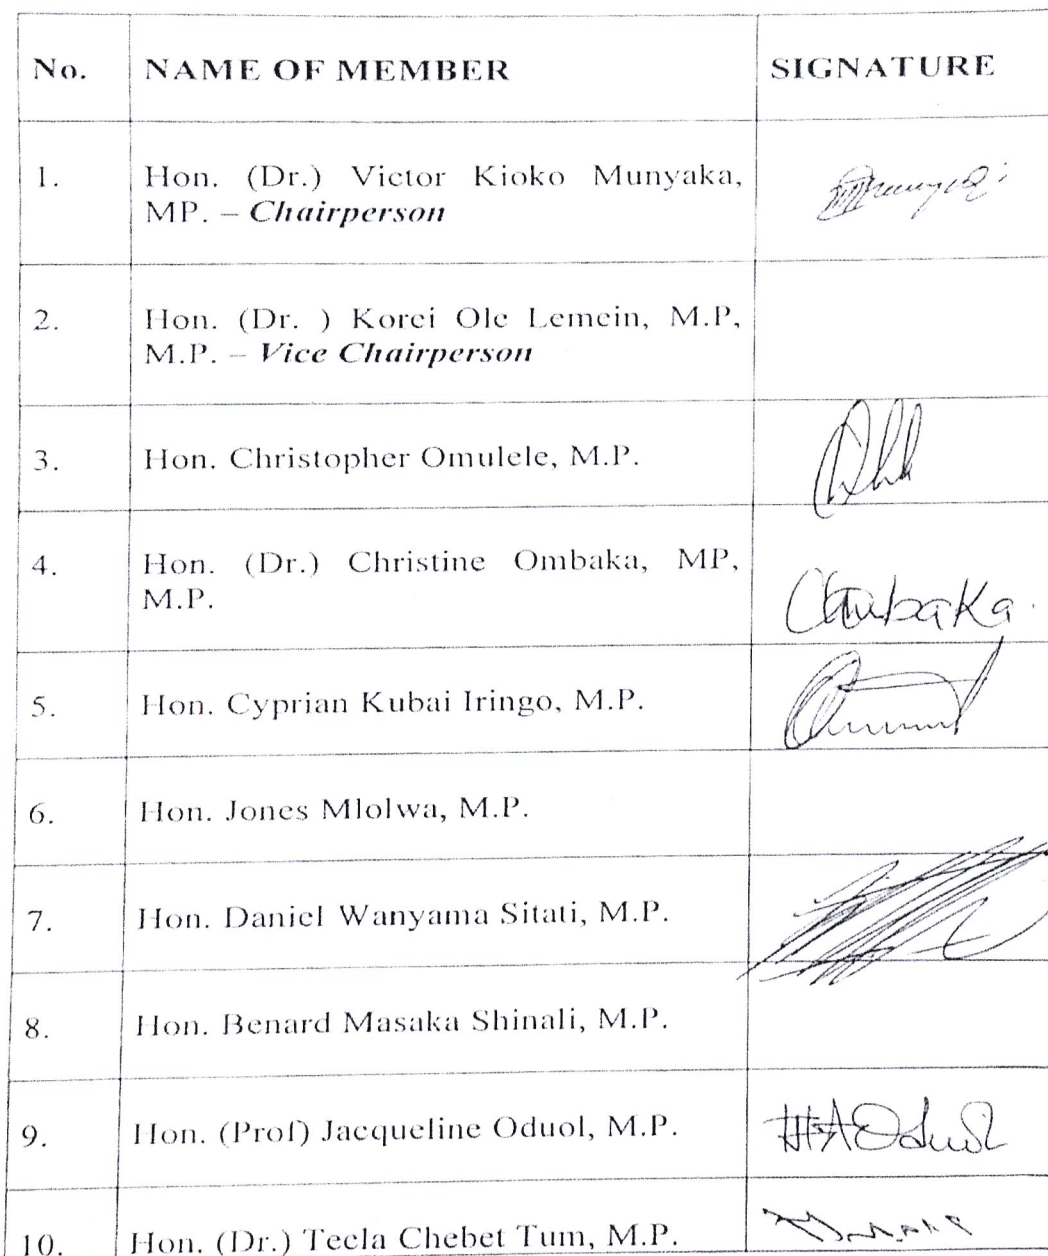 No. NAME OF MEMBER SIGNATURE
1. Hon. (Dr.) Victor Kioko Munyaka,
MP. – Chairperson
2. Hon. (Dr. ) Korei Ole Lemein, M.P,
M.P. – Vice Chairperson
3. Hon. Christopher Omulele, M.P.
4. Hon. (Dr.) Christine Ombaka, MP,
M.P.
5. Hon. Cyprian Kubai Iringo, M.P.
6. Hon. Jones Mlolwa, M.P.
7. Hon. Daniel Wanyama Sitati, M.P.
8. Hon. Benard Masaka Shinali, M.P.
9. Hon. (Prof) Jacqueline Oduol, M.P.
10. Hon. (Dr.) Tecla Chebet Tum, M.P.